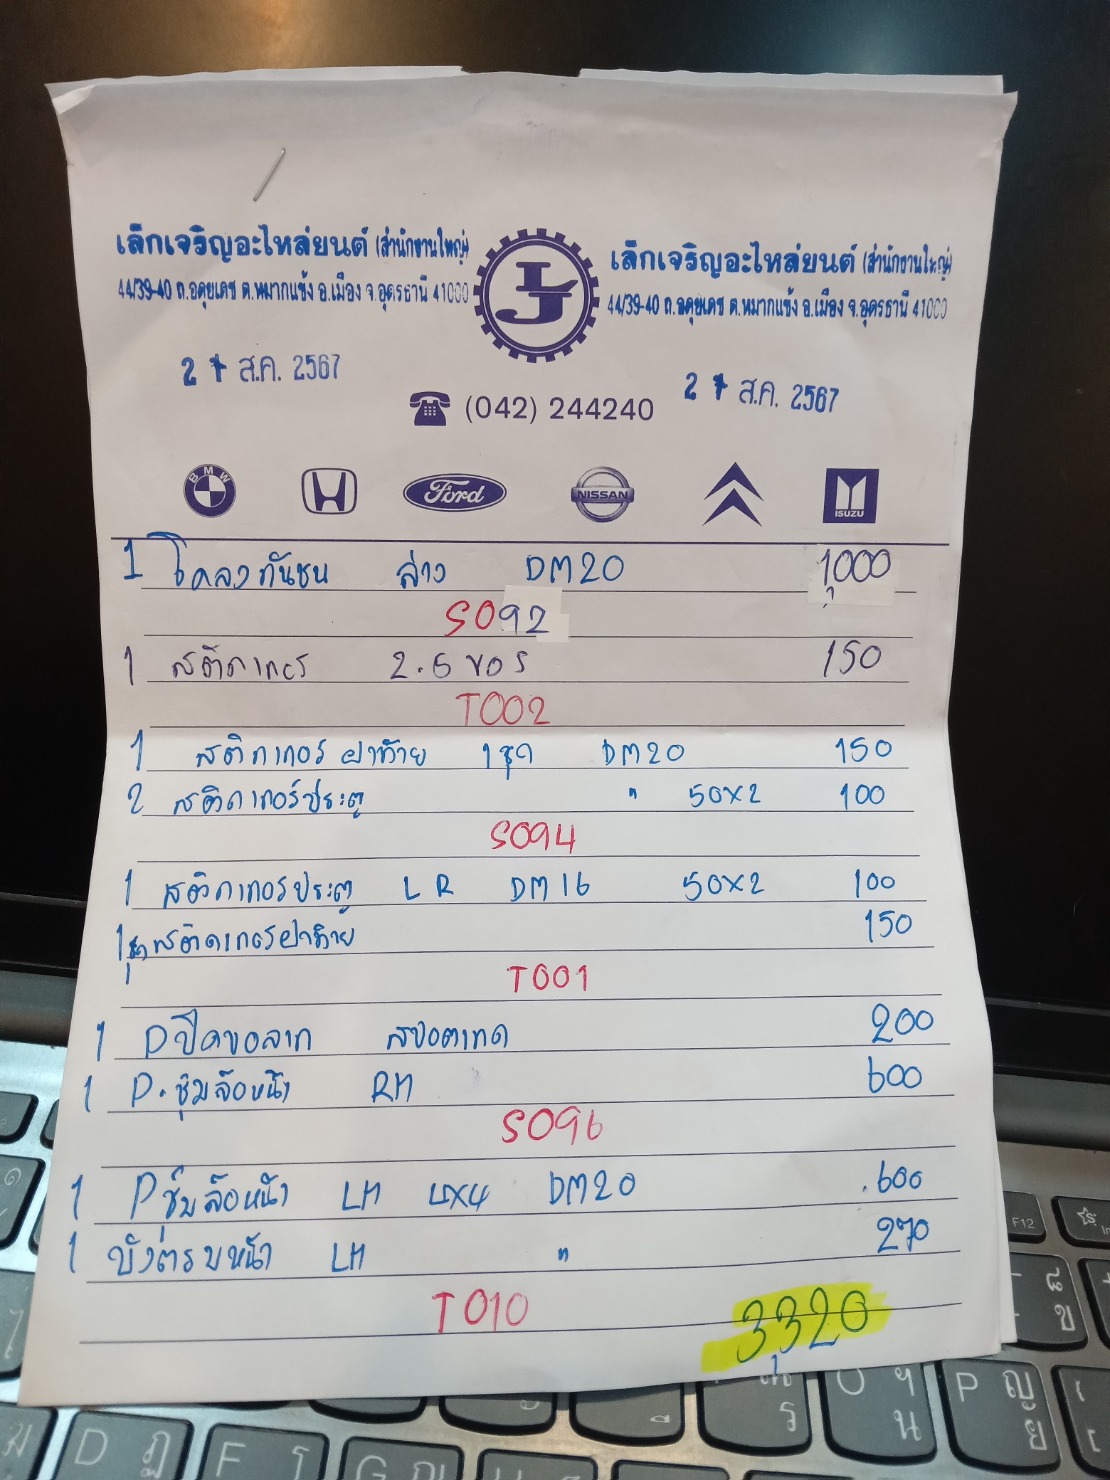 เล็กเจริญอะไหล่ยนต์ (สำนักงานใหญ่)
44/39-40 ถ.อดุยเดช ต.หมากแข้ง อ.เมือง จ.อุดรธานี 41000
LJ
เล็กเจริญอะไหล่ยนต์ (สำนักงานใหญ่)
44/39-40 ถ.อดุยเดช ต.หมากแข้ง อ.เมือง จ.อุดรธานี 41000
ส.ค. 2567
ส.ค. 2567
(042) 244240
BMW
Ford
NISSAN
ISUZU
1 โคลงกันชน ล่าง DM20 1,000
S092
1 สติกเกอร์ 2.5 150
T002
1 สติกเกอร์ฝาท้าย 1ชุด DM20 150
2 สติกเกอร์ประตู " 50x2 100
S094
1 สติกเกอร์ประตู L R DM16 50x2 100
1ชุด สติกเกอร์ฝาท้าย 150
T001
1 Pปิดขอลาก สปอตเทค 200
1 P.ซุ้มล้อหน้า RH 600
S096
1 Pซุ้มล้อหน้า LH 4x4 DM20 600
1 บังตรบหน้า LH " 270
T010
3,320
F12
D
F
G
O
P